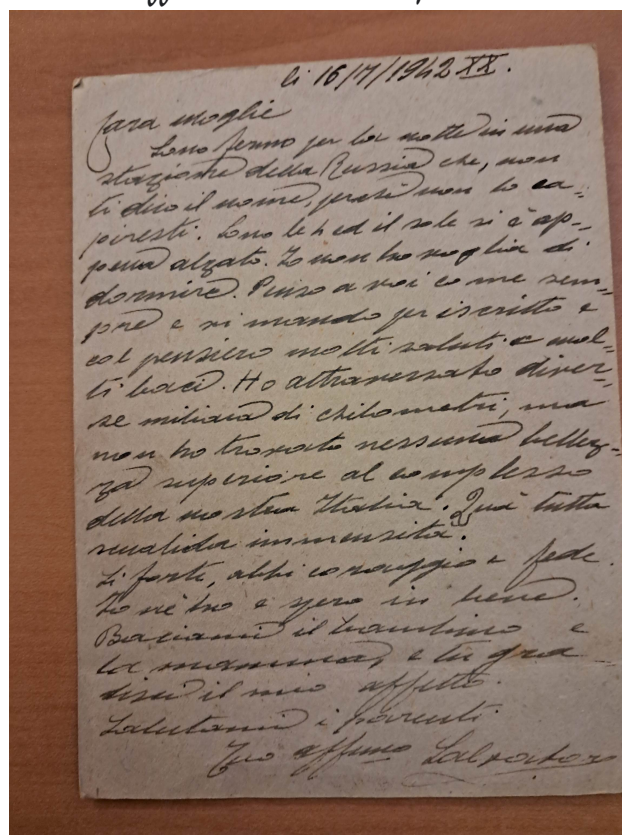 li 16/7/1942 XX.
Cara moglie
Sono fermo per la notte in una
stazione della Russia che, non
ti dico il nome, perchè non lo ca-
piresti. Sono le 4 ed il sole si è ap-
pena alzato. Io non ho voglia di
dormire. Penso a voi come sem-
pre e vi mando per iscritto e
col pensiero molti saluti e mol-
ti baci. Ho attraversato diver-
se migliaia di chilometri, ma
non ho trovato nessuna bellez-
za superiore al complesso
della nostra Italia. Quà tutta
squallida immensità.
Si forte, abbi coraggio e fede.
Io nè ho e spero in bene.
Baciami il bambino e
la mamma, e tu gra-
disci il mio affetto.
Salutami i parenti.
Tuo affmo Salvatore